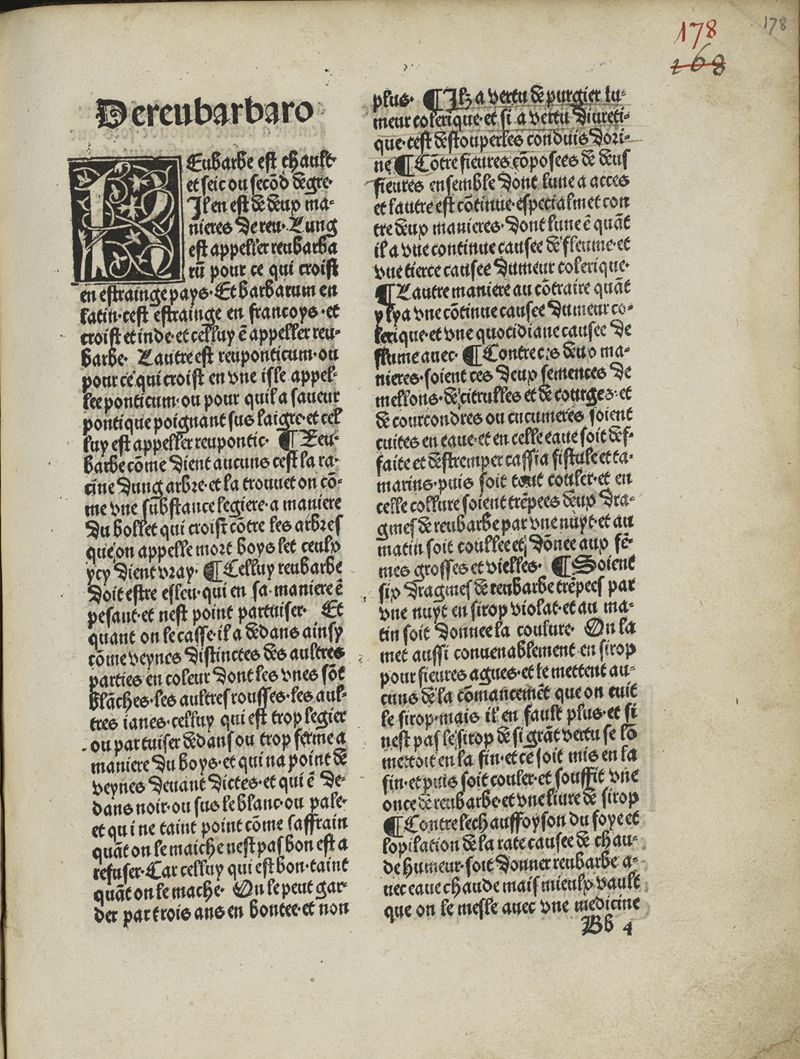 178
168
178
De reubarbaro
REubarbe est chault
et seic ou secōd degre·
Il en est de deux ma-
nieres de reu· Lung
est appeller reubarba
rū pour ce qui croist
en estrainge pays· Et barbarum en
latin·cest estrainge en francoys·et
croist et inde·et celluy ē appeller reu-
barbe· Lautre est reuponticum·ou
pour ce qui croist en vne isle appel-
lee ponticum·ou pour quil a saueur
pontique poignant sus laigre·et cel
luy est appeller reupontic· ¶ Reu-
barbe cōme dient aucuns cest la ra-
cine dung arbre·et la trouuet on cō-
me vne substance legiere·a maniere
du bollet qui croist cōtre les arbres
que on appelle mort boys let ceulx
ycy dient vray· ¶ Celluy reubarbe
doit estre esleu·qui en sa maniere ē
pesant·et nest point partuiser· Et
quant on le casse·il a dedans ainsy
cōme veynes distinctes des aultres
parties en coleur dont les vnes sōt
blāches·les aultres rousses·les aul-
tres ianes·celluy qui est trop legier
ou partuiser dedans ou trop ferme a
maniere du boys·et qui na point de
veynes deuant dictes·et qui ē de-
dans noir·ou sus le blanc·ou pale·
et qui ne taint point cōme saffrain
quāt on le maiche nest pas bon est a
refuser·Car celluy qui est bon·taint
quāt on le mache· On le peut gar-
der par trois ans en bontee·et non
plus· ¶ Il a vertu de purgier lu-
meur colerique·et si a vertu diureti-
que·cest destouper les conduis dori-
ne ¶ Cōtre fieures cōposees de deus
fieures ensemble dont lune a acces
et lautre est cōtinue·especialmēt con
tre deux manieres·dont lune ē quāt
il a vne continue causee de fleume·et
vne tierce causee dumeur colerique·
¶ Lautre maniere au cōtraire quāt
y lya vne cōtinue causee dumeur co-
lerique·et vne quotidiane causee de
fflume auec· ¶ Contre ces deux ma-
nieres·soient ces deux semences de
mellons·de citrulles et de courges·et
de courcondres ou cucumeres soient
cuites en eaue·et en celle eaue soit def-
faite et destremper cassia fistule et ta-
marins·puis soit tout couler·et en
celle collure soient trēpees deux dra-
gmes de reubarbe par vne nuyt·et au
matin soit coullee et dōnee aux fē-
mes grosses et vielles· ¶ Soient
six dragmes de reubarbe trēpees par
vne nuyt en sirop violat·et au ma-
tin soit donnee la coulure· On la
met aussi conuenablement en sirop
pour fieures agues·et le mettent au-
cuns de la cōmancemēt que on cuit
le sirop·mais il en fault plus·et si
nest pas le sirop de si grāt vertu se lō
mettoit en la fin·et ce soit mis en la
fin·et puis soit couler·et souffit vne
once de reubarbe·et vne liure de sirop
¶ Contre lechauffoyson du foye et
lopilation de la rate causee de chau-
de humeur·soit donner reubarbe a-
uec eaue chaude mais mieulx vault
que on le mesle auec vne medicine
Bb 4